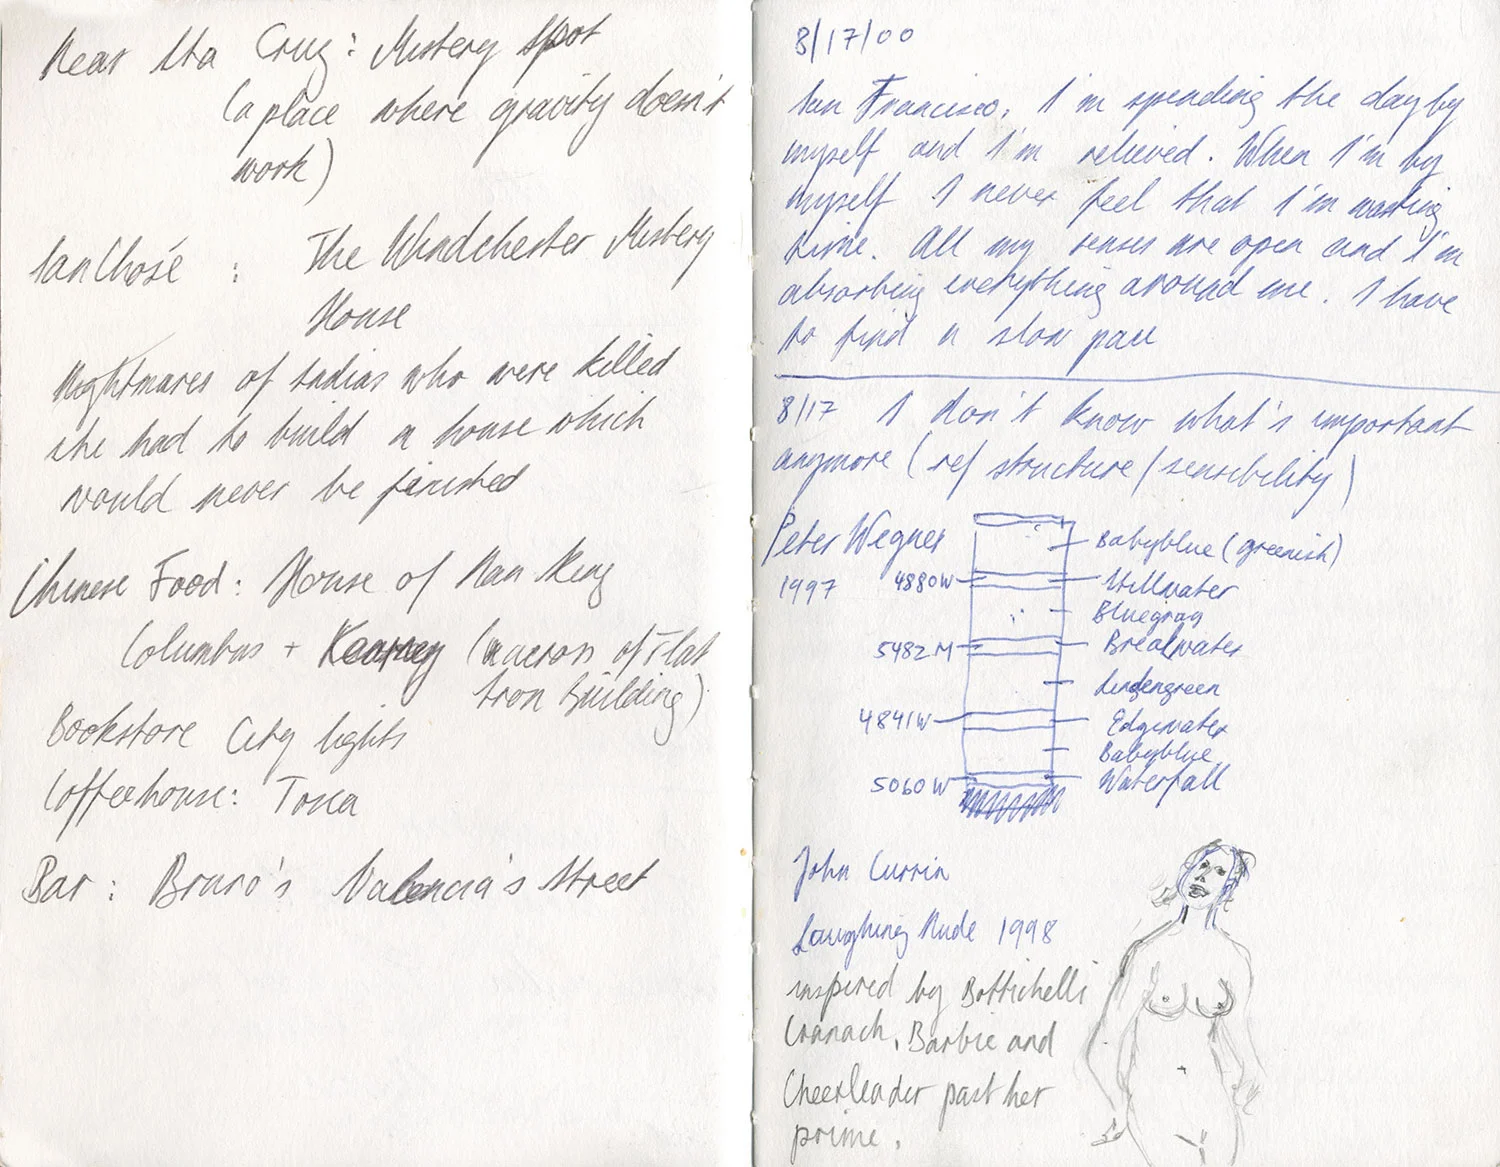 Near Sta Cruz: Mistery Spot
(a place where gravity doesn't
work)
San Chosé : The Windchester Mistery
House
Nightmares of Indias who were killed
she had to build a house which
would never be finished
Chinese Food: House of Nan King
Columbus + Kearney (across of Flat
Iron Building)
Bookstore City lights
Coffeehouse: Tosca
Bar: Bruno's Valencia's Street
8/17/00
San Francisco, I'm spending the day by
myself and I'm relieved. When I'm by
myself I never feel that I'm wasting
time. All my senses are open and I'm
absorbing everything around me. I have
to find a slow pace
8/17 I don't know what's important
anymore (ref structure/sensibility)
Peter Wegner
1997
Babyblue (greenish)
4880W Stillwater
Bluegray
5482M Breakwater
Lindengreen
4841W Edgewater
Babyblue
5060W Waterfall
John Currin
Laughing Nude 1998
inspired by Bottichelli
Cranach, Barbie and
Cheerleader past her
prime.